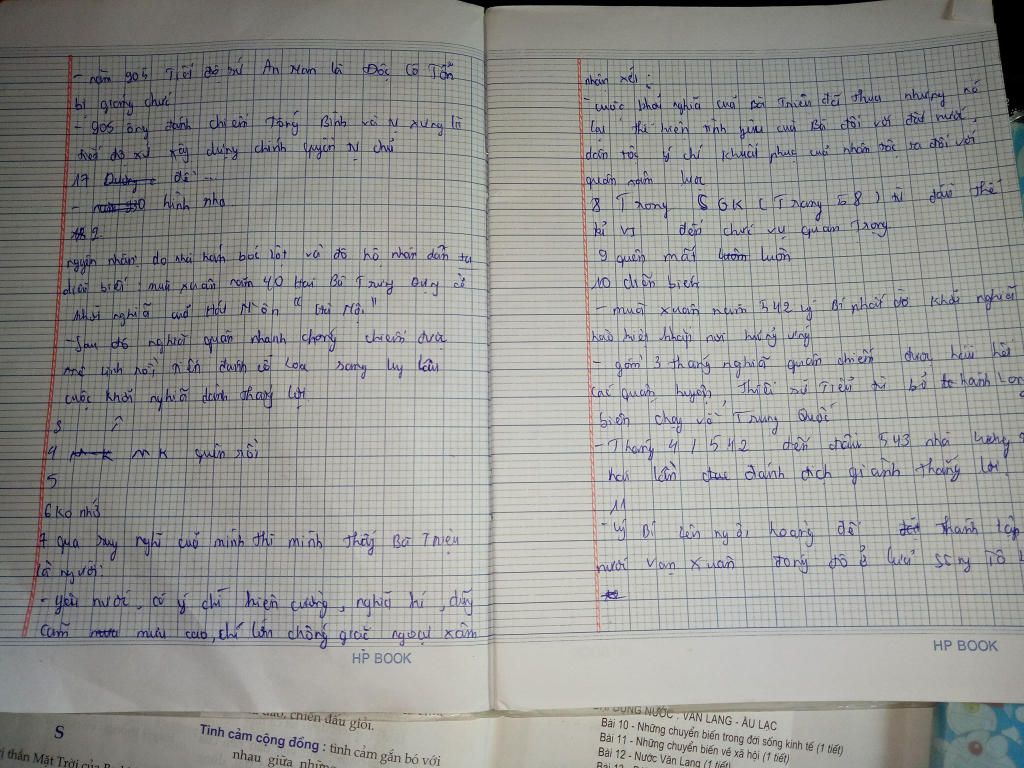 - năm 905 Tiết độ sứ An Nam là Độc Cô Tổn
bị giáng chức
- 905 ông đánh chiếm Tống Bình và tự xưng là
tiết độ sứ xây dựng chính quyền tự chủ
17 đế ...
- hình nhá
2
nguyên nhân do nhà hán bóc lột và đô hộ nhân dân ta
diễn biến: mùa xuân năm 40 Hai Bà Trưng dựng cờ
khởi nghĩa cuả Hát Môn " Hà Nội "
- Sau đó nghĩa quân nhanh chóng chiếm được
mê linh rồi tiến đánh cổ Loa sang luy lâu
cuộc khởi nghĩa dành thắng lợi
3
4 mk quên rồi
5
6 ko nhớ
7 qua suy nghĩ cuả mình thì mình thấy Bà Triệu
là người:
- yêu nước, có ý chí kiên cường, nghĩa khí, dũng
cảm mưu cao, chí lớn chống giặc ngoại xâm
HP BOOK
nhận xét:
- cuộc khởi nghĩa cuả Bà Triệu đã thua nhưng nó
lại thể hiện tình yêu cuả Bà đối với đất nước,
dân tộc ý chí khuất phục cuả nhân dân ta đối với
quân xâm lược
8 Trong SGK (Trang 58) từ đầu thế
kỉ VI đến chức vụ quan Trọng
9 quên mất luôn
10 diễn biến
- muà xuân năm 542 Lý Bí phất cờ khởi nghĩa
hào kiệt khắp nơi hưởng ứng
- gồm 3 tháng nghĩa quân chiếm được hầu hết
các quận huyện, Thứ sử Tiêu Tư bỏ thành Long
biên chạy về Trung Quốc
- Tháng 4/542 đến đầu 543 nhà Lương
hai lần đánh địch giành thắng lợi
11
- Lý Bí lên ngôi hoàng đế thành lập
nước Vạn Xuân đóng đô ở cửa sông Tô
HP BOOK
S
chiến đấu giỏi.
Tình cảm cộng đồng : tình cảm gắn bó với
thần Mặt Trời của
nhau giữa những
DỰNG NƯỚC : VĂN LANG - ÂU LẠC
Bài 10 - Những chuyển biến trong đời sống kinh tế (1 tiết)
Bài 11 - Những chuyển biến về xã hội (1 tiết)
Bài 12 - Nước Văn Lang (1 tiết)